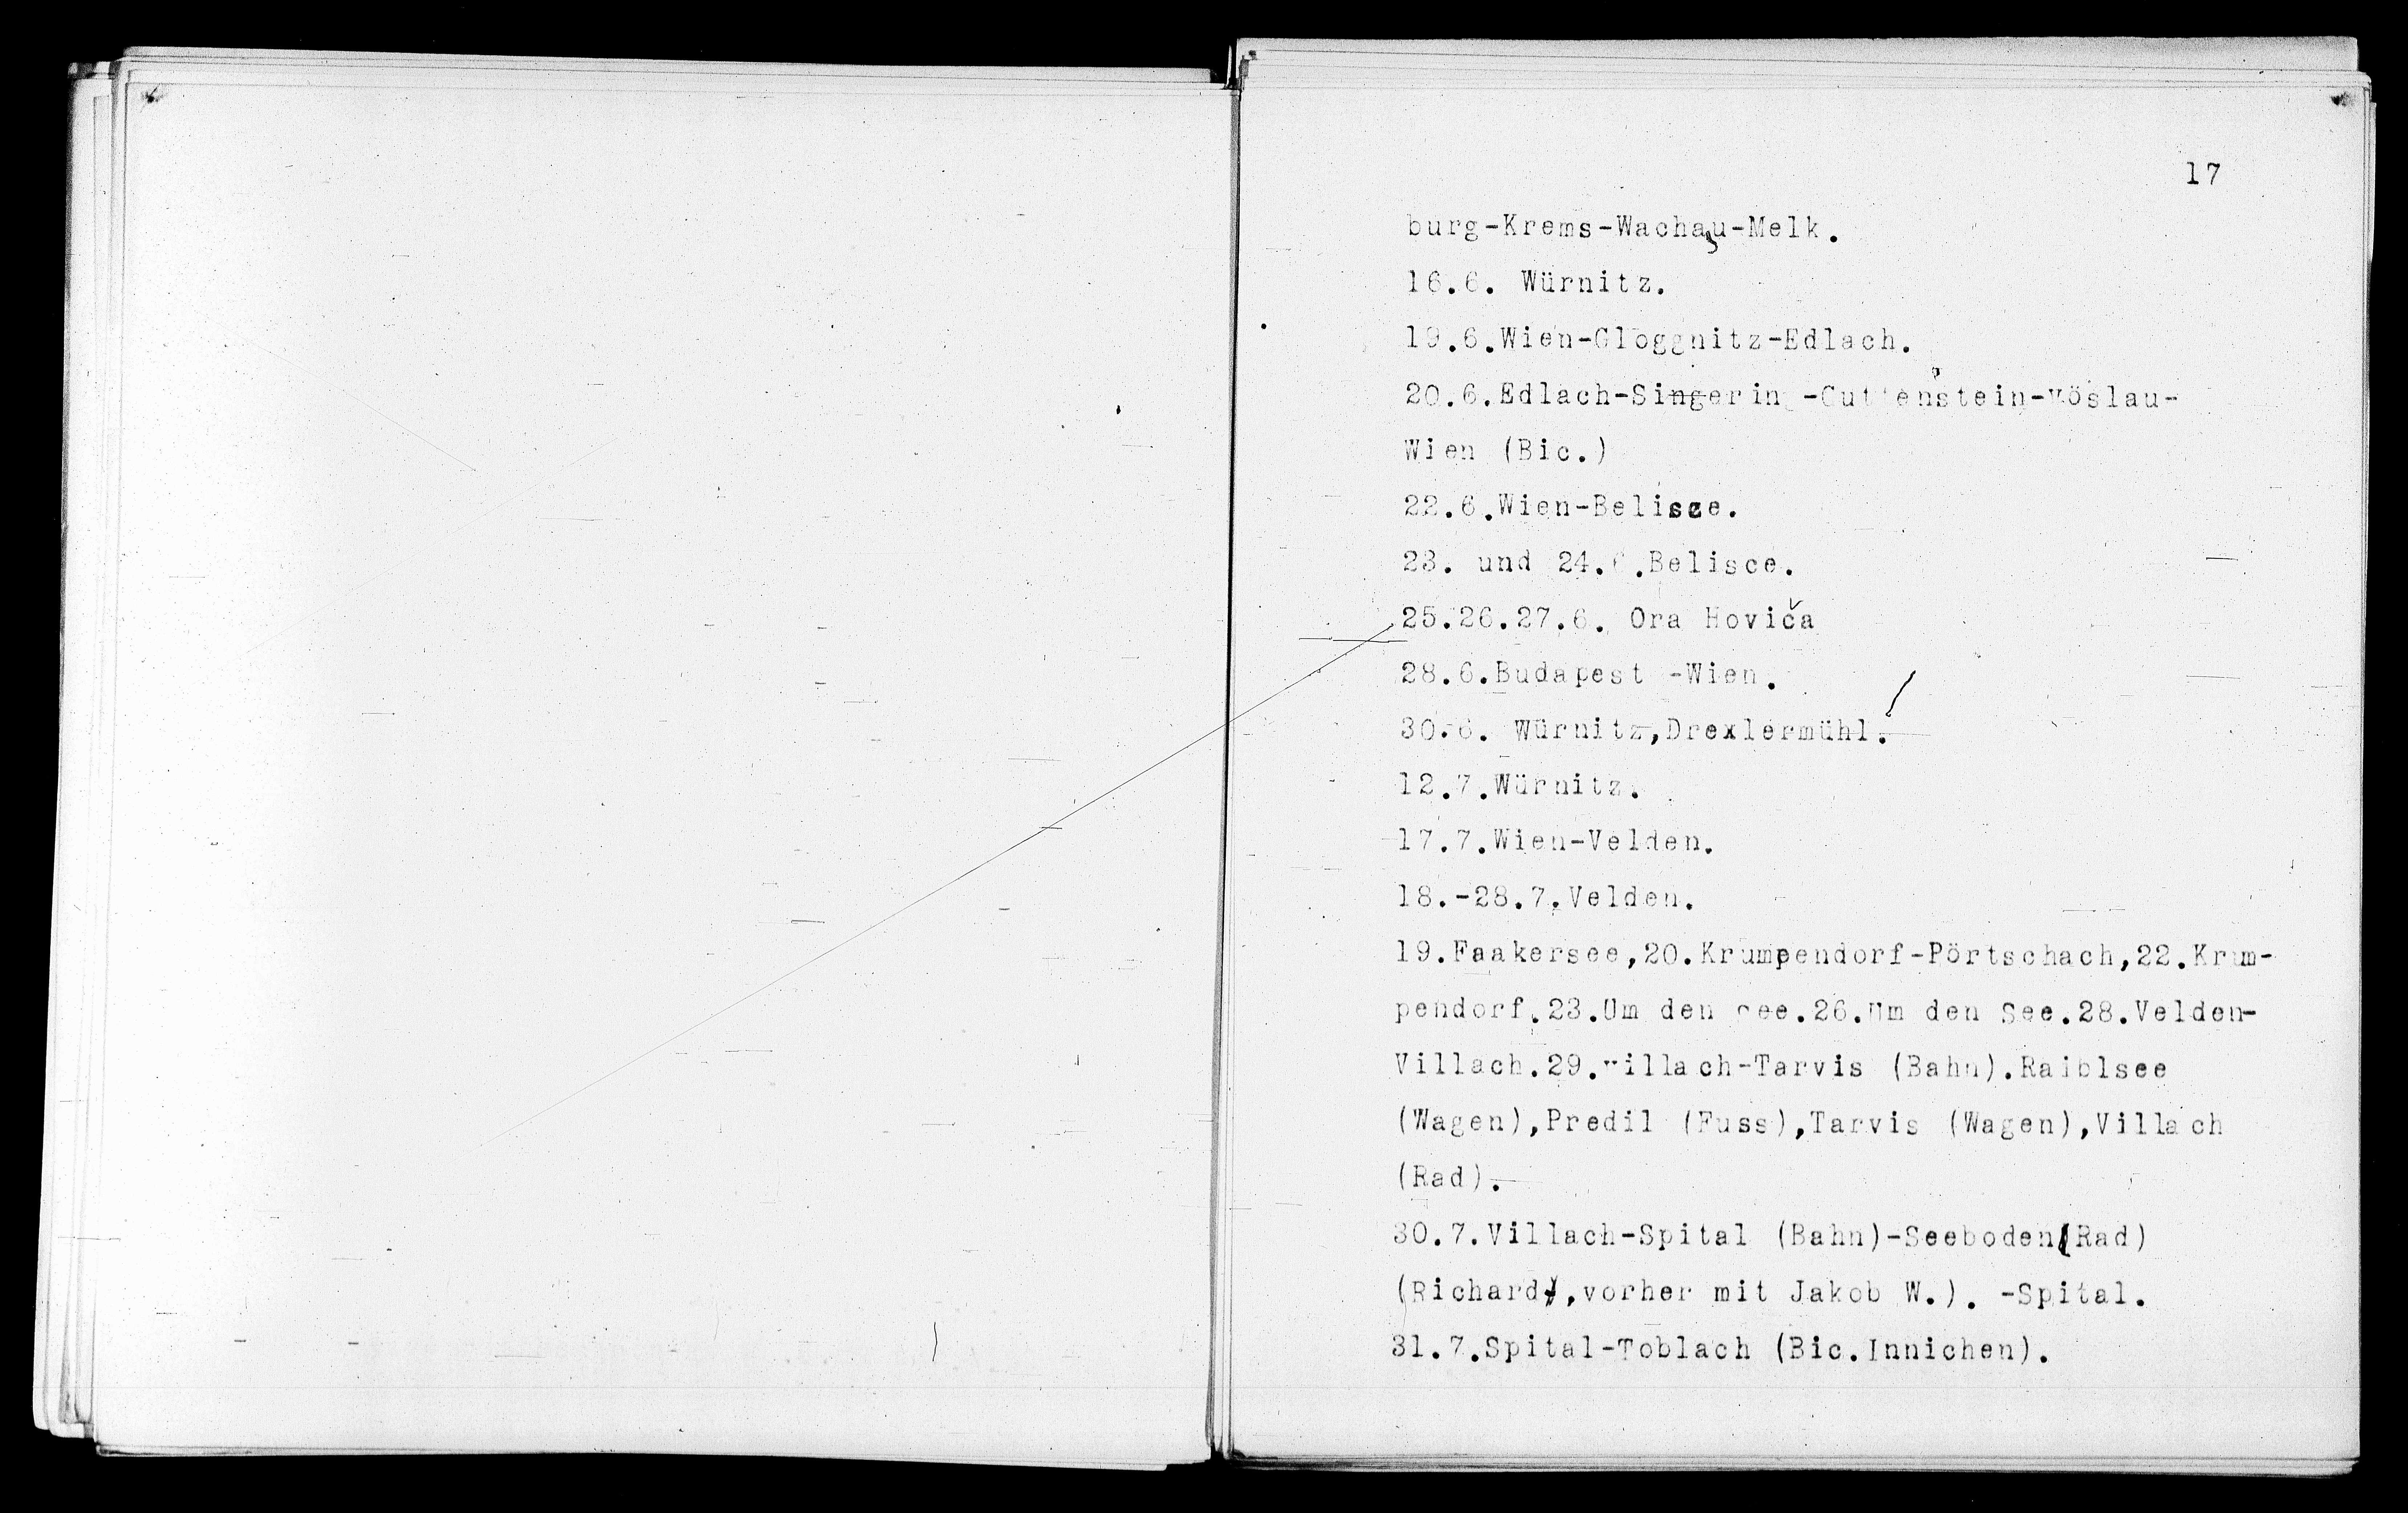 17
burg-Krems-Wachau-Melk.
16.6. Würnitz.
19.6.Wien-Gloggnitz-Edlach.
20.6.Edlach-Singerin -Guttenstein-Vöslau-
Wien (Bic.)
22.6.Wien-Belisce.
23. und 24.6.Belisce.
25.26.27.6. Ora Hoviča
28.6.Budapest -Wien.
30.6. Würnitz,Drexlermühl.
12.7.Würnitz.
17.7.Wien-Velden.
18.-28.7.Velden.
19.Faakersee,20.Krumpendorf-Pörtschach,22.Krum-
pendorf.23.Um den See.26.Um den See.28.Velden-
Villach.29.Villach-Tarvis (Bahn).Raiblsee
(Wagen),Predil (Fuss),Tarvis (Wagen),Villach
(Rad).
30.7.Villach-Spital (Bahn)-Seeboden(Rad)
(Richard,vorher mit Jakob W.). -Spital.
31.7.Spital-Toblach (Bic.Innichen).